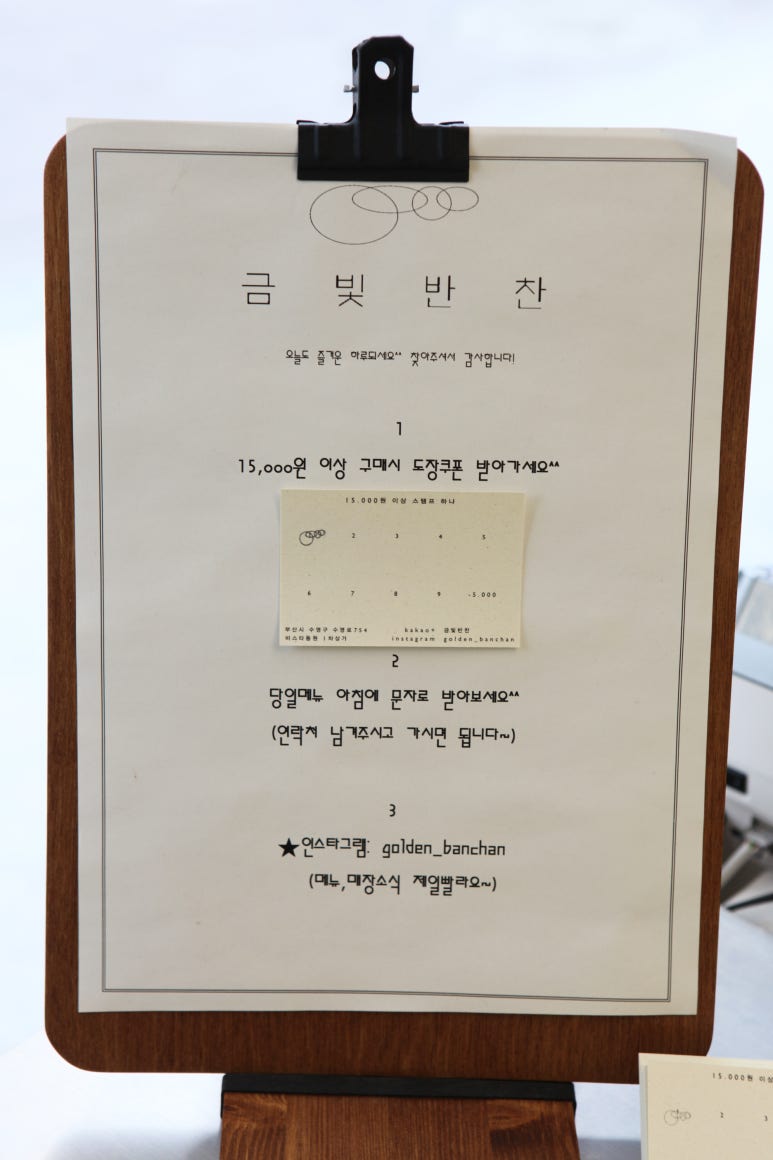 금빛반찬
오늘도 즐거운 하루되세요^^ 찾아주셔서 감사합니다!
1
15,000원 이상 구매시 도장쿠폰 받아가세요^^
15.000원 이상 스탬프 하나
2 3 4 5
6 7 8 9 -5.000
부산시 수영구 수영로754 kakao+ 금빛반찬
비스타동원 1차상가 instagram golden_banchan
2
당일메뉴 아침에 문자로 받아보세요^^
(연락처 남겨주시고 가시면 됩니다~)
3
★인스타그램: golden_banchan
(메뉴,매장소식 제일빨라요~)
15.000원 이상
2 3